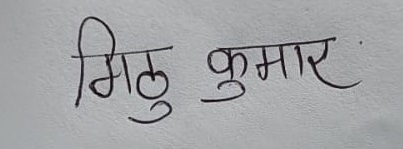 मिठु कुमार